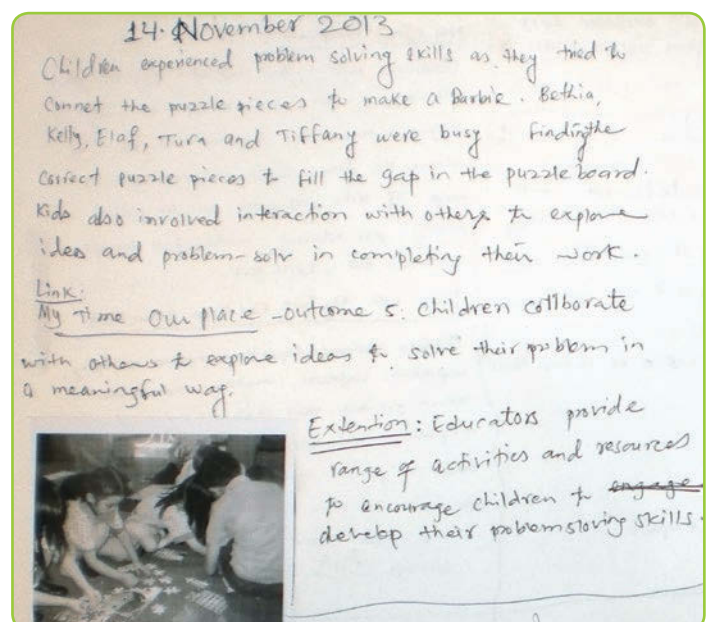 14. November 2013
Children experienced problem solving skills as they tried to
Connet the puzzle pieces to make a Barbie. Bethia,
Kelly, Elaf, Tura and Tiffany were busy findingthe
correct puzzle pieces to fill the gap in the puzzle board.
Kids also involved interaction with others to explore
idea and problem-solv in completing their work.
Link:
My Time Our Place - Outcome 5: Children collborate
with others to explore ideas to solve their problem in
a meaningful way.
Extention: Educators provide
range of activities and resources
to encourage children to engage
develop their problemsloving skills.